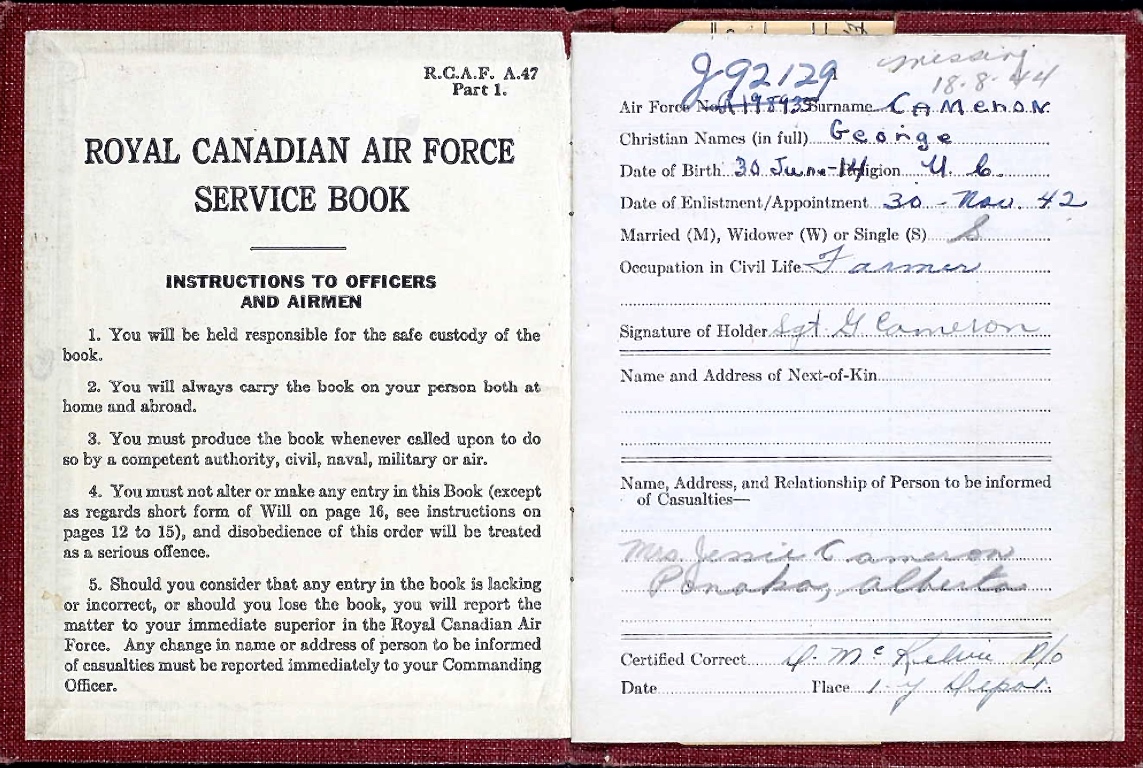 R.C.A.F. A.47
Part 1.
ROYAL CANADIAN AIR FORCE
SERVICE BOOK
INSTRUCTIONS TO OFFICERS
AND AIRMEN
1. You will be held responsible for the safe custody of the
book.
2. You will always carry the book on your person both at
home and abroad.
3. You must produce the book whenever called upon to do
so by a competent authority, civil, naval, military or air.
4. You must not alter or make any entry in this Book (except
as regards short form of Will on page 16, see instructions on
pages 12 to 15), and disobedience of this order will be treated
as a serious offence.
5. Should you consider that any entry in the book is lacking
or incorrect, or should you lose the book, you will report the
matter to your immediate superior in the Royal Canadian Air
Force. Any change in name or address of person to be informed
of casualties must be reported immediately to your Commanding
Officer.
J92129 missing
18-8-44
Air Force No. R198935 Surname Cameron
Christian Names (in full) George
Date of Birth 30 June-14 Religion U. C.
Date of Enlistment/Appointment 30 - Nov. 42
Married (M), Widower (W) or Single (S) S
Occupation in Civil Life Farmer
Signature of Holder Sgt. G Cameron
Name and Address of Next-of-Kin
Name, Address, and Relationship of Person to be informed
of Casualties—
Mrs. Jessie Cameron
Ponoka, Alberta
Certified Correct D. McKelvie P/O
Date Place 1-Y Depot